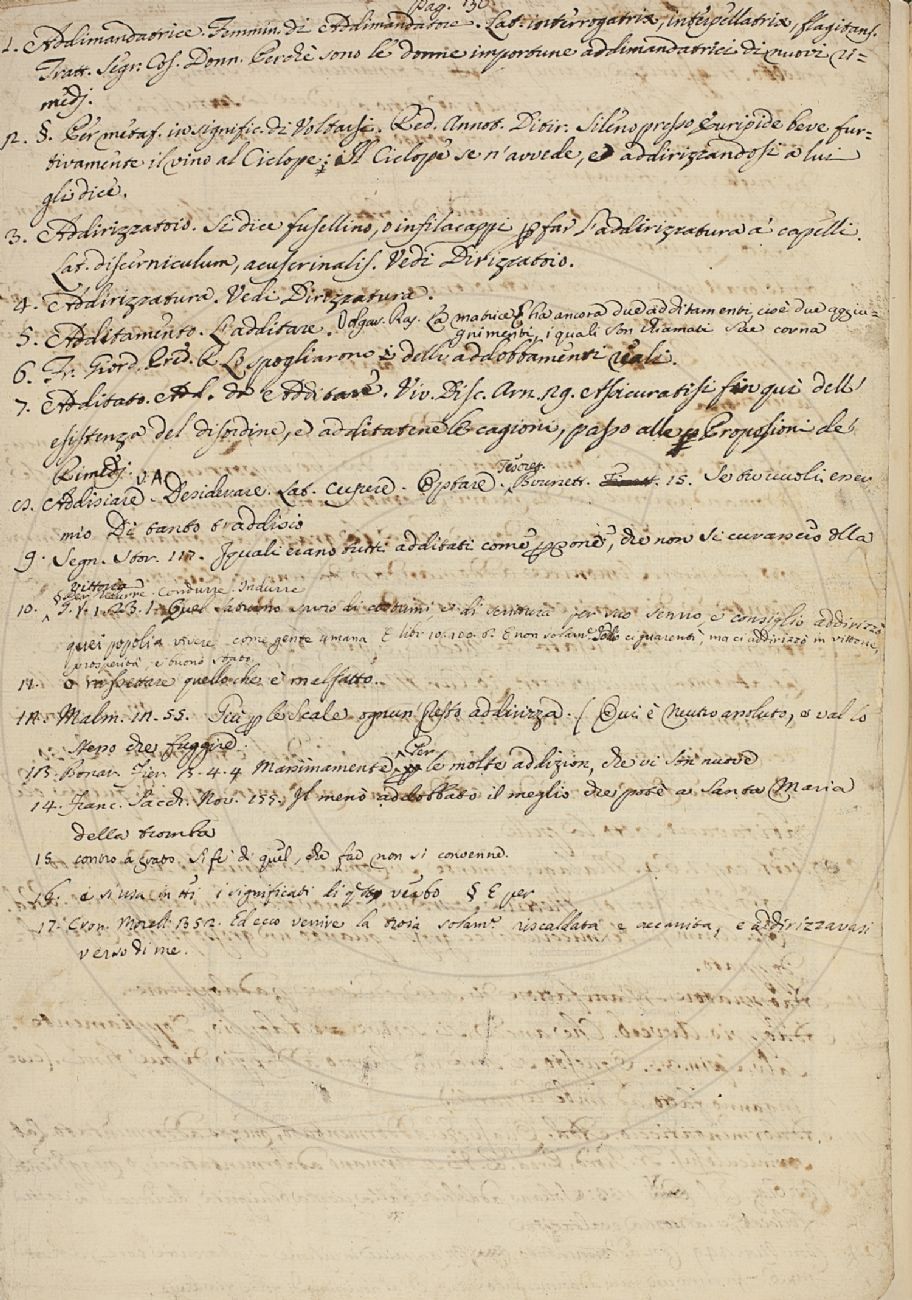 Pag. 130
1. Addimandatrice. Femmin. di Addimandatore. Lat. interrogatrix, interpellatrix, flagitans.
Tratt. Segr. Cos. Donn. Perchè sono le donne importune addimandatrici di nuovi ri=
medj.
2. §. Per metaf. in signific. di Voltarsi. Red. Annot. Ditir. Sileno presso Euripide beve fur=
tivamente il vino al Ciclope; Il Ciclope se n'avvede, e addirizzandosi a lui
gli dice.
3. Addirizzatoio. Si dice fusellino, o infilacappi p far l'addirizzatura a' capelli.
Lat. discerniculum, acus crinalis. Vedi Dirizzatoio.
4. Addirizzatura. Vedi Dirizzatura.
5. Additamento. L'additare. Volgar. Ras. La matrice ha ancora due additamenti, cioè due aggiu=
gnimenti, i quali son chiamati sue corna
6. Fr. Giord. Pred. R. Lo spogliarono delli addobbamenti reali.
7. Additato. Ad. da Additare. Viv. Disc. Arn. 29. Assicuratisi fin qui dell'
esistenza del disordine, e additatene le cagioni, passo alle Proposizioni de'
Rimedj.
8. Addisiare V. A. Desiderare. Lat. cupere. Optare. Brunett. Tesoret. 15. Se tu vuoli, ene
mio Di tanto t'addisio
9. Segn. Stor. 117. I quali erano tutti additati come psone, che non si curavano della
vittoria
§ Per Ridurre. Condurre. Indurre
10. G. V. 1. 23. 1. Quel Saturno di costumi e di scrittura per suo senno, e consiglio addirizzò
quei popoli a vivere come gente umana E lib. 10. 100. 6. E non solam. ci guarentì, ma ci addirizzò in vittorie,
prosperità, e buono stato.
11. o rassettare quello che è malfatto.
12. Malm. 12. 55. Giù p le Scale ognun presto addirizza. (Qui è Neutro assoluto, e val lo
stesso che fuggire
13. Bonar. Fier. 3. 4. 4 Massimamente Per le molte addizion, che vi son nuove
14. Franc. Sacch. Nov. 155. Il meno addobbato il meglio che potè a Santa Maria
della tromba
15. contro a grato. Si fe' di quel, che far non si convenne.
16. e si usa in tti i significati di qto verbo § E per
17. Cron. Morell. 352. Ed ecco venire la troia solam. riscaldata e accanita, e addirizzavasi
verso di me.